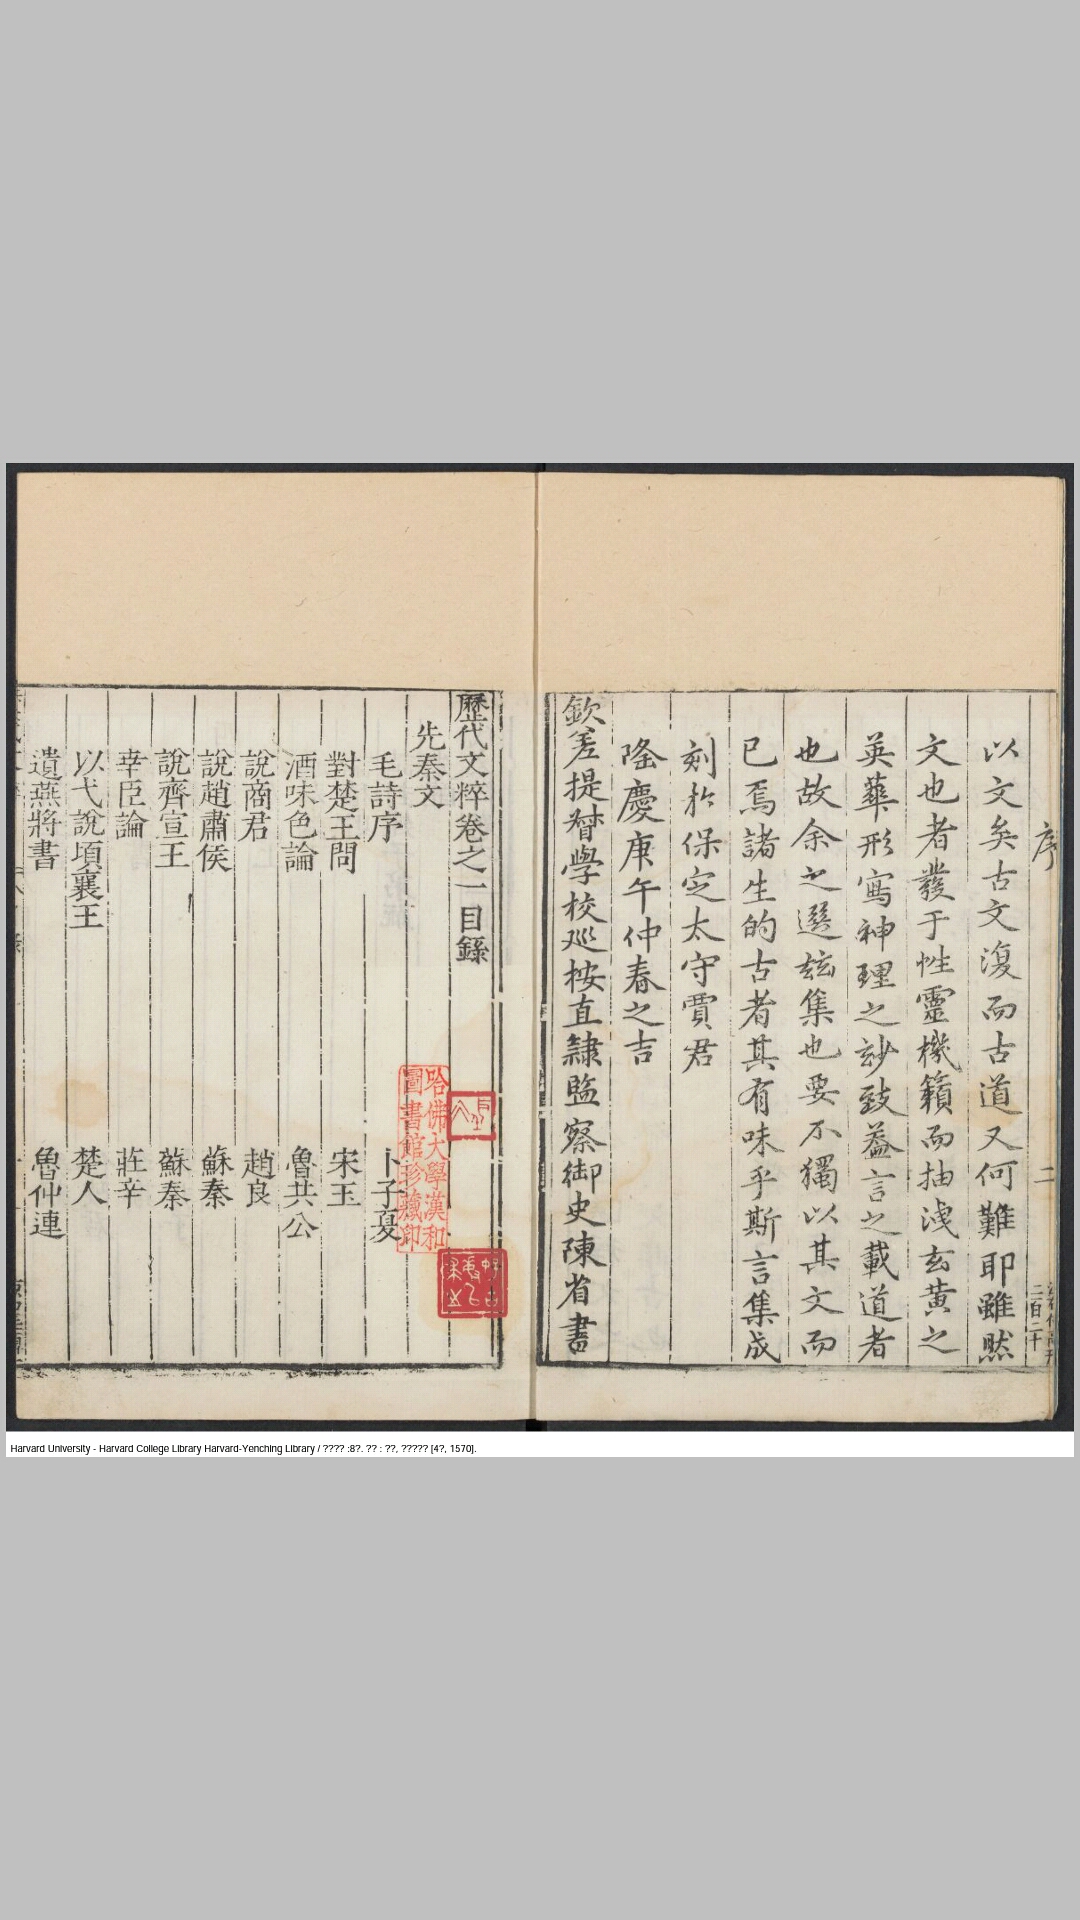 序
二
以文矣古文復而古道又何難耶雖然
文也者發于性靈機籟而抽洩玄黃之
英華形寫神理之玅致葢言之載道者
也故余之選玆集也要不獨以其文而
已焉諸生的古者其有味乎斯言集成
刻於保定太守賈君
隆慶庚午仲春之吉
欽差提督學校巡按直隸監察御史陳省書
歷代文粹卷之一目錄
先秦文
毛詩序 卜子夏
對楚王問 宋玉
酒味色論 魯共公
說商君 趙良
說趙肅侯 蘇秦
說齊宣王 蘇秦
幸臣論 莊辛
以弋說頃襄王 楚人
遺燕將書 魯仲連
哈佛大學漢和
圖書館珍藏印
Harvard University - Harvard College Library Harvard-Yenching Library / ???? :8?. ?? : ??, ????? [4?, 1570].